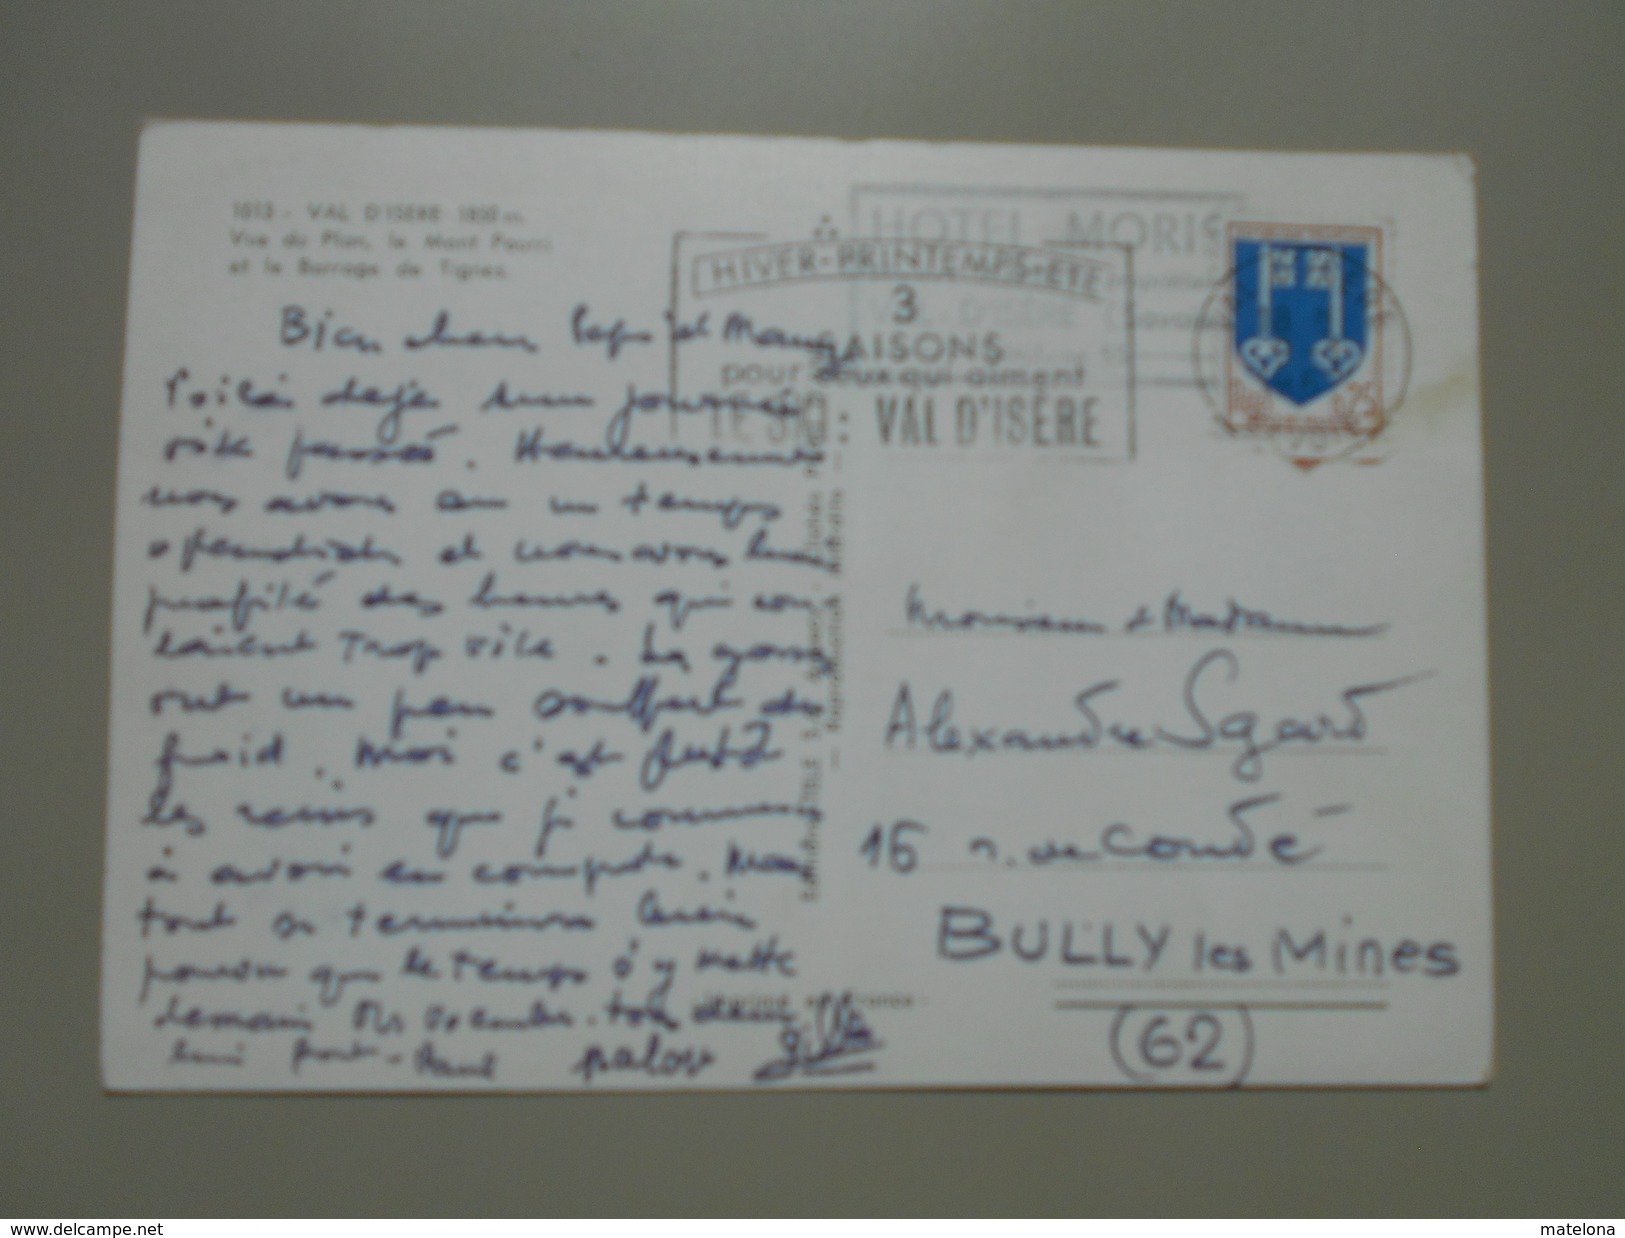 1013 - VAL D'ISERE 1850 m.
Vue du Plan, le Mont Pourri
et le Barrage de Tignes.
HOTEL MORIS
VAL D'ISÈRE (Savoie)
HIVER-PRINTEMPS-ETE
3
SAISONS
pour ceux qui aiment
LE SKI: VAL D'ISÈRE
0,25
Bien chers Papi et Mamy
Voilà déjà une journée
vite passée. Heureusement
nous avons eu un temps
splendide et nous avons bien
profité des heures qui cou
laient trop vite. Les gones
ont un peu souffert du
froid. Moi c'est plutôt
les reins que je commence
à avoir en compote. Mais
tout se terminera bien
pourvu que le temps s'y mette
demain
Imprimé en France -
Monsieur & Madame
Alexandre Sgard
16 r. de Condé
BULLY les Mines
(62)
www.delcampe.net
matelona